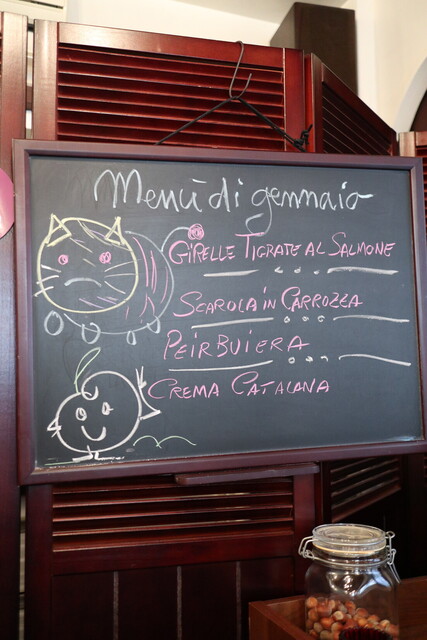 Menù di gennaio
GIRELLE TIGRATE AL SALMONE
SCAROLA IN CARROZZA
PEIRBUIERA
CREMA CATALANA